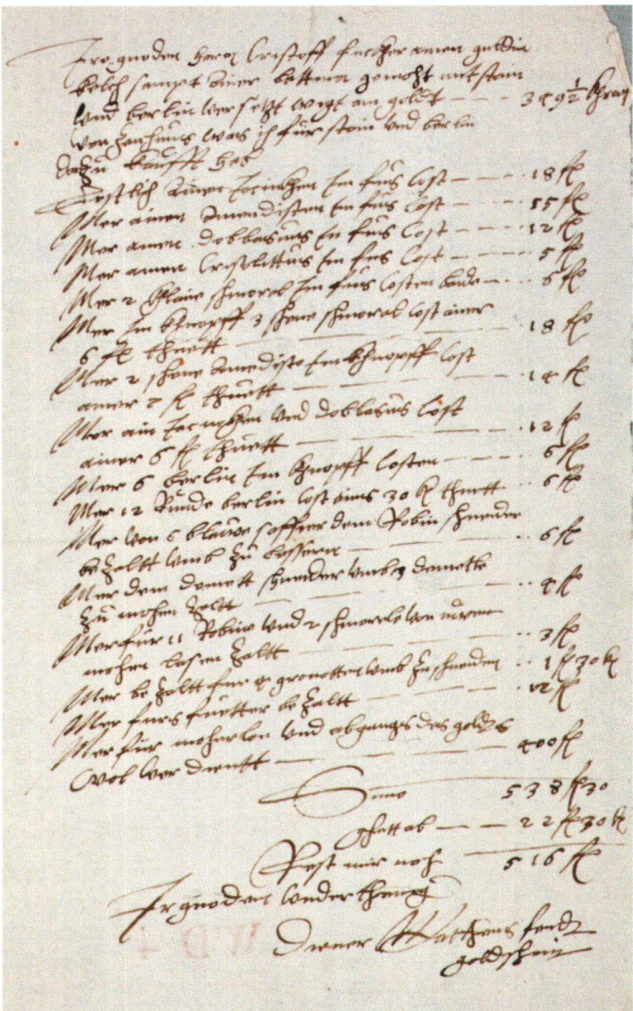 Iro gnoden heren Cristoff fuckher ainen guldin
kelch sampt ainer bettenn gemacht mit stein
und berlin versetzt wigt an goldt — 349½ khron
von was ich für stein und berlin
dozu kaufft hab
Erstlich ainen Jocinkhen Im fuß cost — 18 fl
Mer ainen Amedisten Im fuß cost — 55 fl
Mer ainen doblasius Im fuß cost — 12 fl
Mer ainen Crisolittus Im fuß cost — 5 fl
Mer 2 klaine schmoral Im fuß costen beide — 6 fl
Mer Im khnopff 3 schene schmoral cost ainer
6 fl thuett — 18 fl
Mer 2 schene Amedisto Im khnopff cost
ainer 7 fl thuett — 14 fl
Mer ain Jocinkhen und doblasius cost
ainer 6 fl thuett — 12 fl
Mer 6 berlin Im khnopff costen — 6 fl
Mer 12 Runde berlin cost aine 30 k thuett — 6 fl
Mer von 6 blauwe saffier dem Robin schneider
bezaltt umb zu bessern — 6 fl
Mer dem demett schneider umb 3 demette
zu mohen zaltt — 4 fl
Mer für 11 Robine und 2 schmorele von
mohen lasen zaltt — 3 fl
Mer bezaltt fur 4 gronotten umb zu schneiden — 1 fl 30 k
Mer furs fuetter bezaltt — 12 fl
Mer für moherlon und abgangs des golds
wol verdientt — 400 fl
Suma 538 fl 30
ghett ab — 22 fl 30 k
Rest mir noh 516 fl
Ir gnoden underthenig
Diener Matheus fendt
goldschmit
W D 4